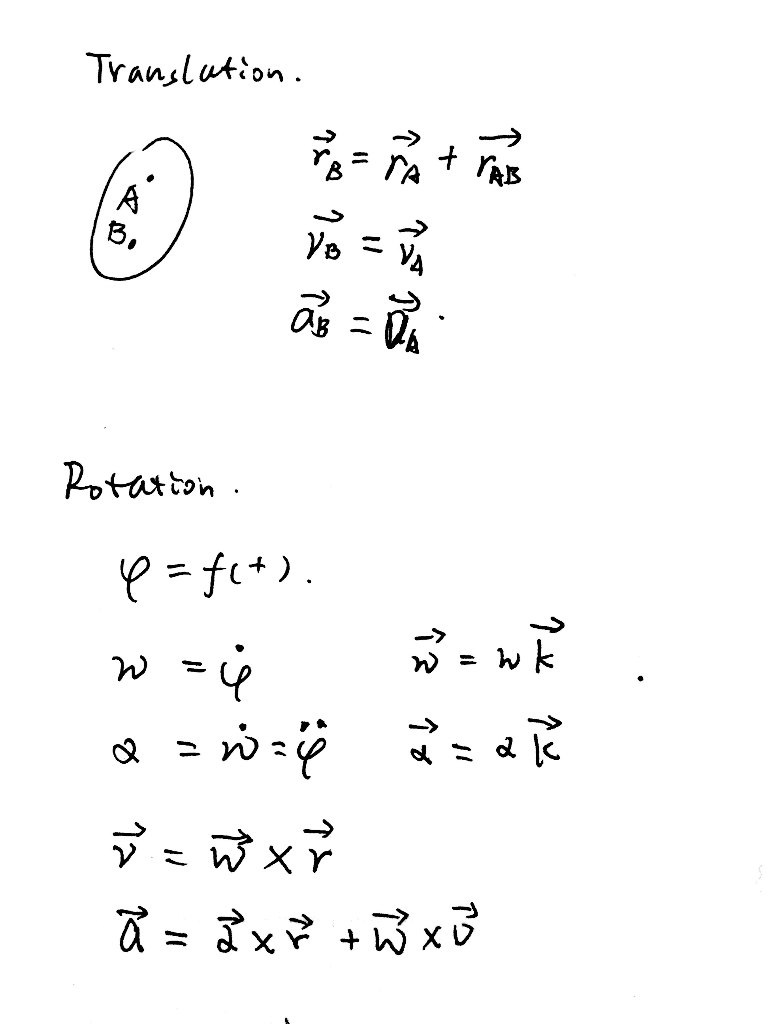 Translation.
A
B
r⃗_B = r⃗_A + r⃗_AB
v⃗_B = v⃗_A
a⃗_B = a⃗_A.
Rotation.
φ = f(t).
w = φ̇
w⃗ = w k⃗
α = ẇ = φ̈
α⃗ = α k⃗
v⃗ = w⃗ × r⃗
a⃗ = α⃗ × r⃗ + w⃗ × v⃗